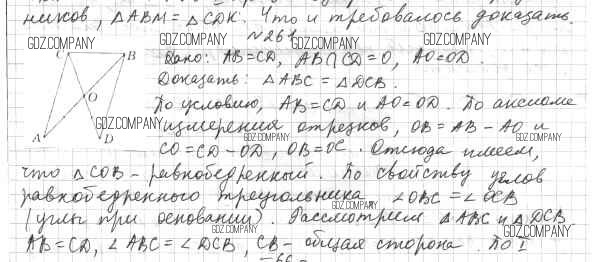 ников, △ABM = △CDK. Что и требовалось доказать.
GDZ.COMPANY GDZ.COMPANY GDZ.COMPANY
№261
Дано: AB=CD, AB∩CD=O, AO=OD.
Доказать: △ABC = △DCB.
По условию, AB=CD и AO=OD. По аксиоме
измерения отрезков, OB = AB - AO и
CO=CD-OD, OB=OC. Отсюда имеем,
что △COB - равнобедренный. По свойству углов
равнобедренного треугольника ∠OBC=∠OCB
(углы при основании). Рассмотрим △ABC и △DCB
AB=CD, ∠ABC=∠DCB, CB - общая сторона. По I
C B
O
A D
GDZ.COMPANY
GDZ.COMPANY
GDZ.COMPANY
GDZ.COMPANY
GDZ.COMPANY
GDZ.COMPANY